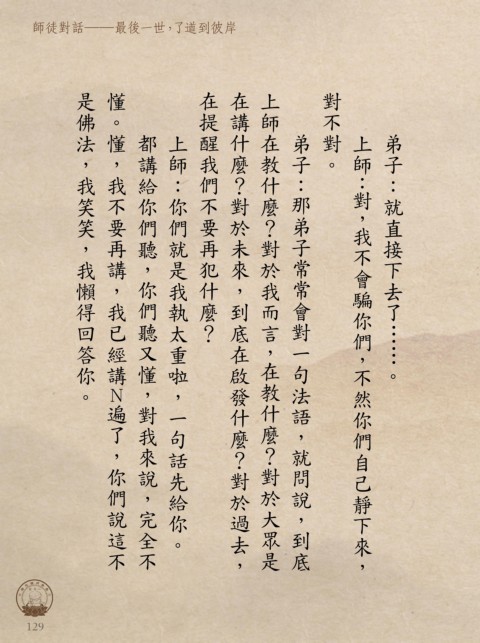 師徒對話——最後一世，了道到彼岸
弟子：就直接下去了……。
上師：對，我不會騙你們，不然你們自己靜下來，
對不對。
弟子：那弟子常常會對一句法語，就問說，到底
上師在教什麼？對於我而言，在教什麼？對於大眾是
在講什麼？對於未來，到底在啟發什麼？對於過去，
在提醒我們不要再犯什麼？
上師：你們就是我執太重啦，一句話先給你。
都講給你們聽，你們聽又懂，對我來說，完全不
懂。懂，我不要再講，我已經講N遍了，你們說這不
是佛法，我笑笑，我懶得回答你。
129